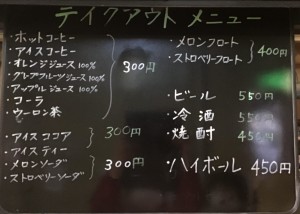 テイクアウト メニュー
・ホットコーヒー
・アイスコーヒー
・オレンジジュース 100%
・グレープフルーツジュース 100%
・アップルジュース 100%
・コーラ
・ウーロン茶
300円
・アイスココア
・アイスティー
300円
・メロンソーダ
・ストロベリーソーダ
300円
・メロンフロート
・ストロベリーフロート
400円
・ビール 550円
・冷酒 550円
・焼酎 450円
・ハイボール 450円